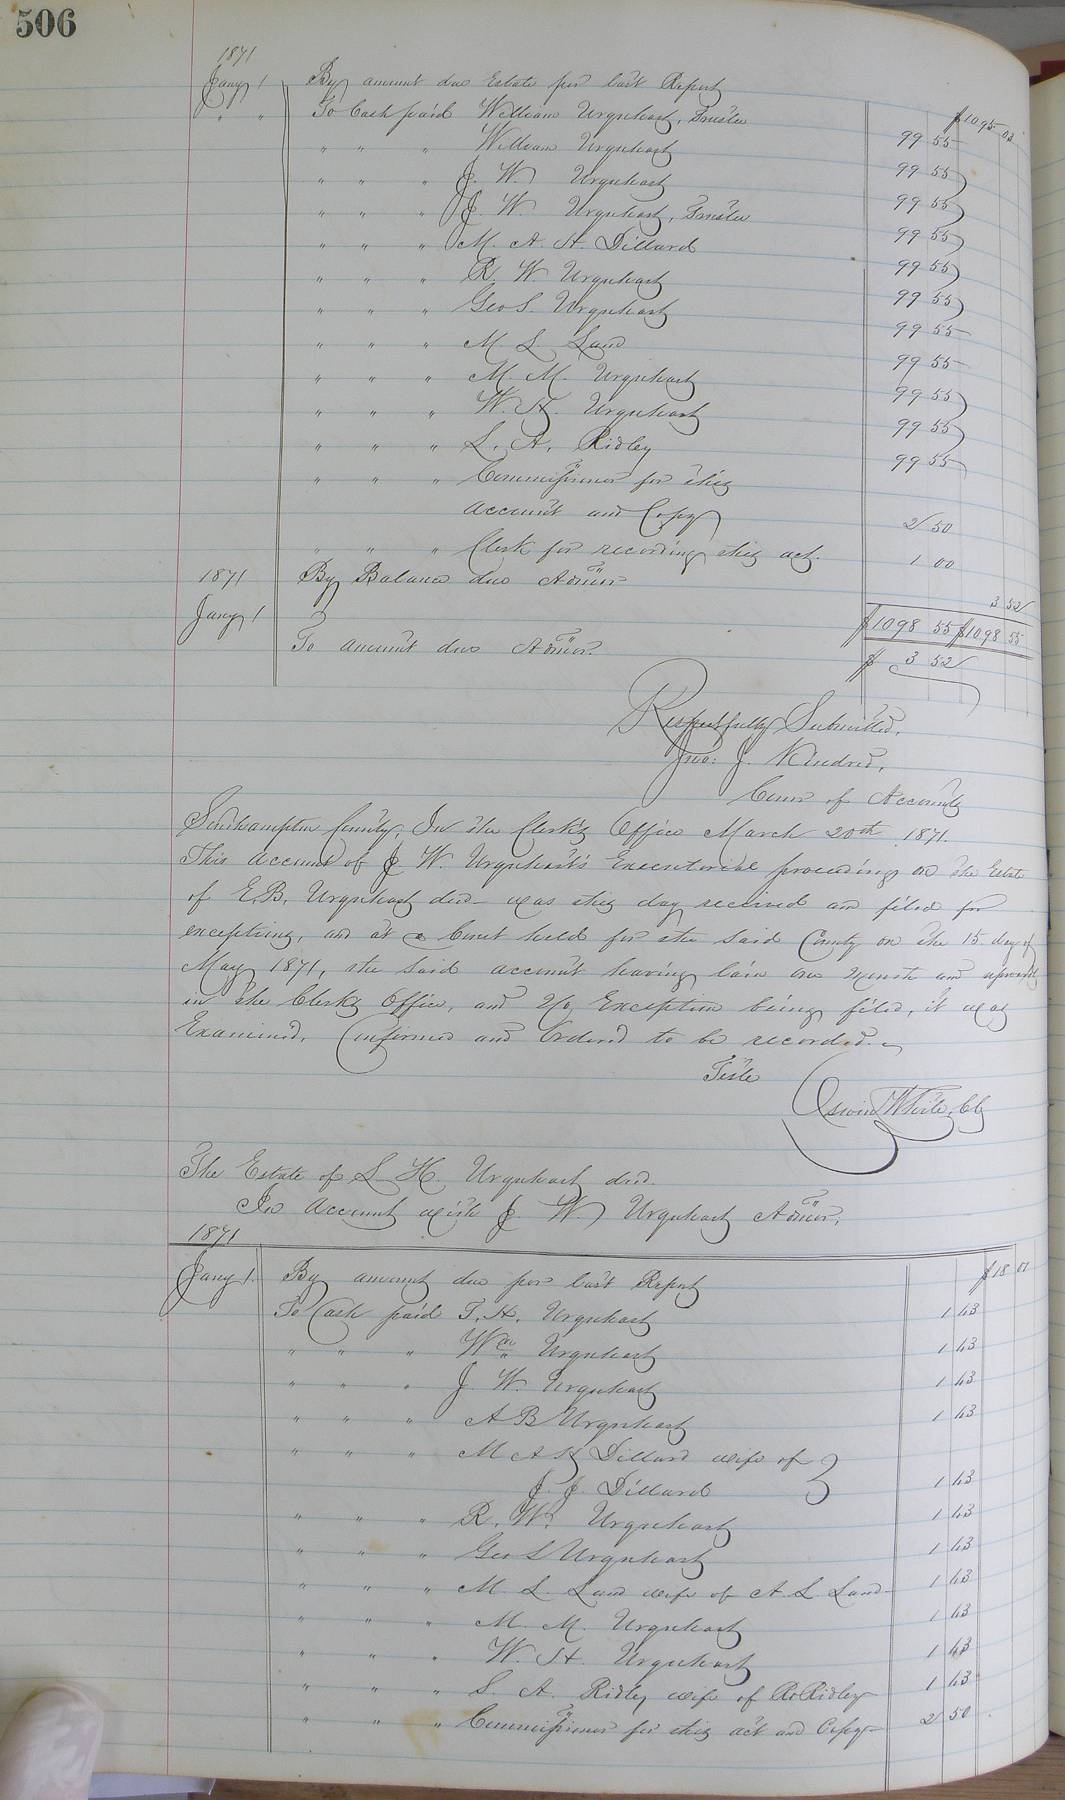 506
1871
Jany 1 By amount due Estate per last Report $1095 03
" " To Cash paid William Urquhart, Trustee 99 55
" " " William Urquhart 99 55
" " " J. W. Urquhart 99 55
" " " J. W. Urquhart, Trustee 99 55
" " " M. A. H. Dillard 99 55
" " " R. W. Urquhart 99 55
" " " Geo S. Urquhart 99 55
" " " M. L. Land 99 55
" " " M. M. Urquhart 99 55
" " " W. H. Urquhart 99 55
" " " L. A. Ridley 99 55
" " " Commissioner for this
account and Copy 2 50
" " " Clerk for recording this act. 1 00
1871 By Balance due Admr 3 52
$1098 55 $1098 55
Jany 1 To amount due Admr. $ 3 52
Respectfully Submitted,
Jno: J. Kindred,
Comr of Accounts
Southampton County, In the Clerk's Office March 20th 1871.
This account of J. W. Urquhart's Executorial proceedings on the Estate
of E. B. Urquhart decd was this day received and filed for
exceptions, and at a Court held for the said County on the 15 day of
May 1871, the said account having lain one month and upwards
in the Clerks Office, and no Exception being filed, it was
Examined, Confirmed and Ordered to be recorded.
Teste
White, Clk
The Estate of L H. Urquhart decd.
In account with J. W. Urquhart Admr.
1871
Jany 1. By amount due per last Report $18
To Cash paid T. H. Urquhart 1 43
" " " Wm Urquhart 1 43
" " " J W. Urquhart 1 43
" " " A B Urquhart 1 43
" " " M A H Dillard wife of
J. J. Dillard 1 43
" " " R. W. Urquhart 1 43
" " " Geo S Urquhart 1 43
" " " M. L. Land wife of A. L. Land 1 43
" " " M. M. Urquhart 1 43
" " " W. H. Urquhart 1 43
" " " L. A. Ridley wife of Ro Ridley 1 43
" " " Commissioner for this act and Copy 2 50